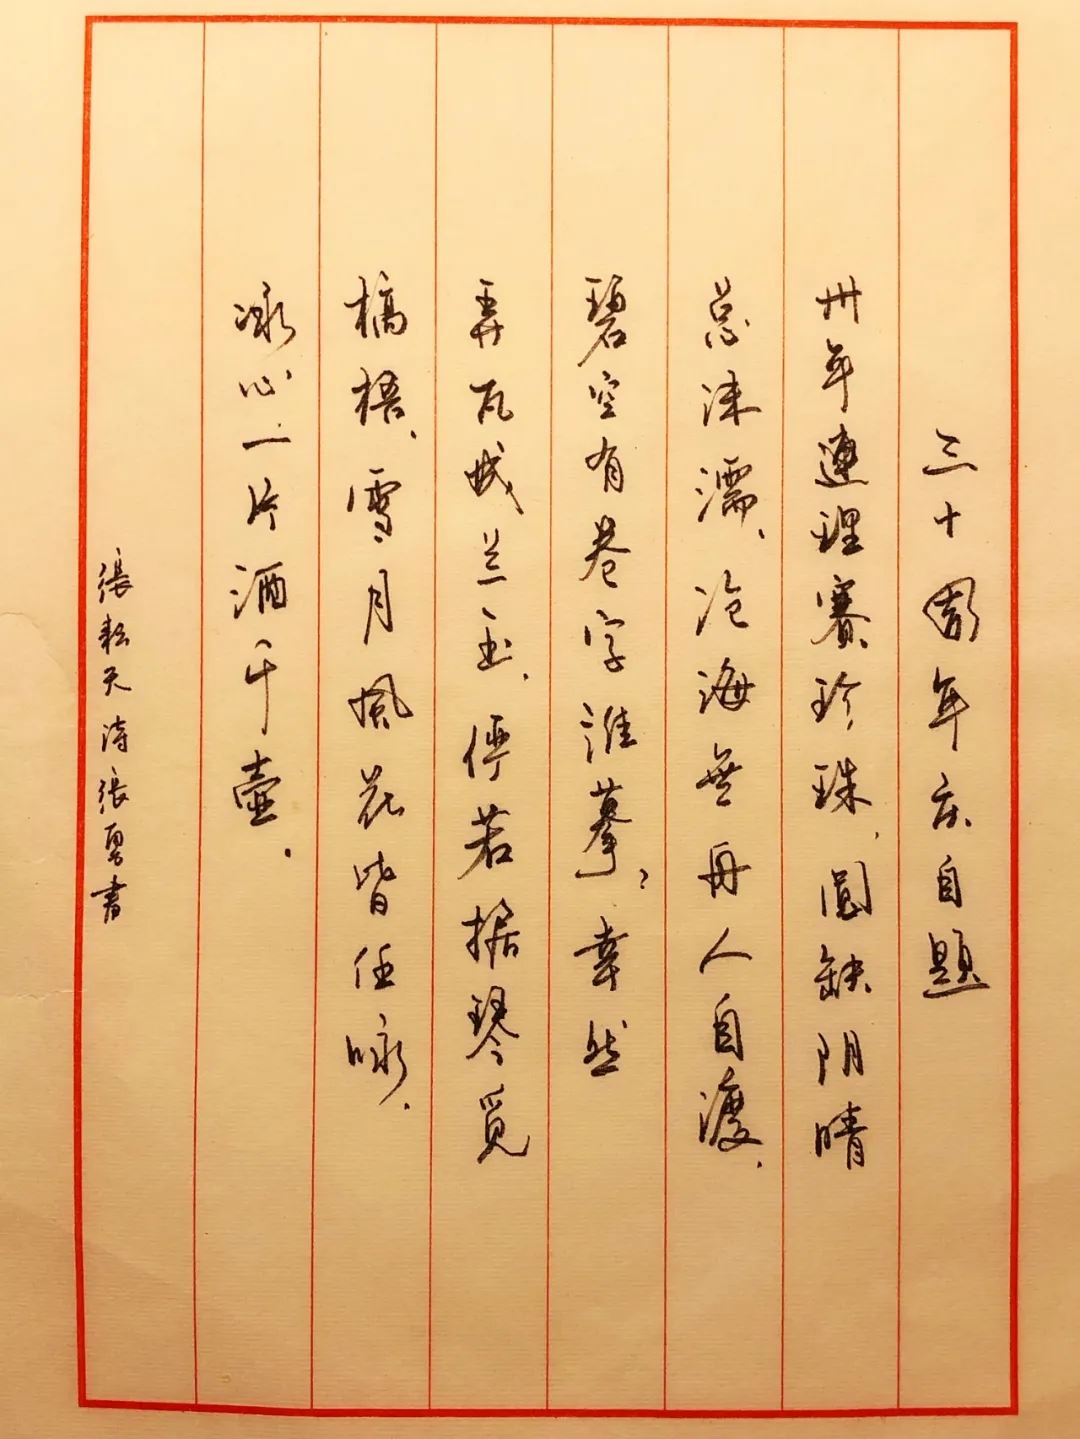 三十周年庆自题
卅年連理賽珍珠,圓缺阴晴
总沫濡,沧海無舟人自渡,
碧空有卷字誰摹?幸然
弄瓦成兰玉,若据琴觅
槁梧,雪月風花皆任咏,
冰心一片酒千壺.
張耘天诗張勇書